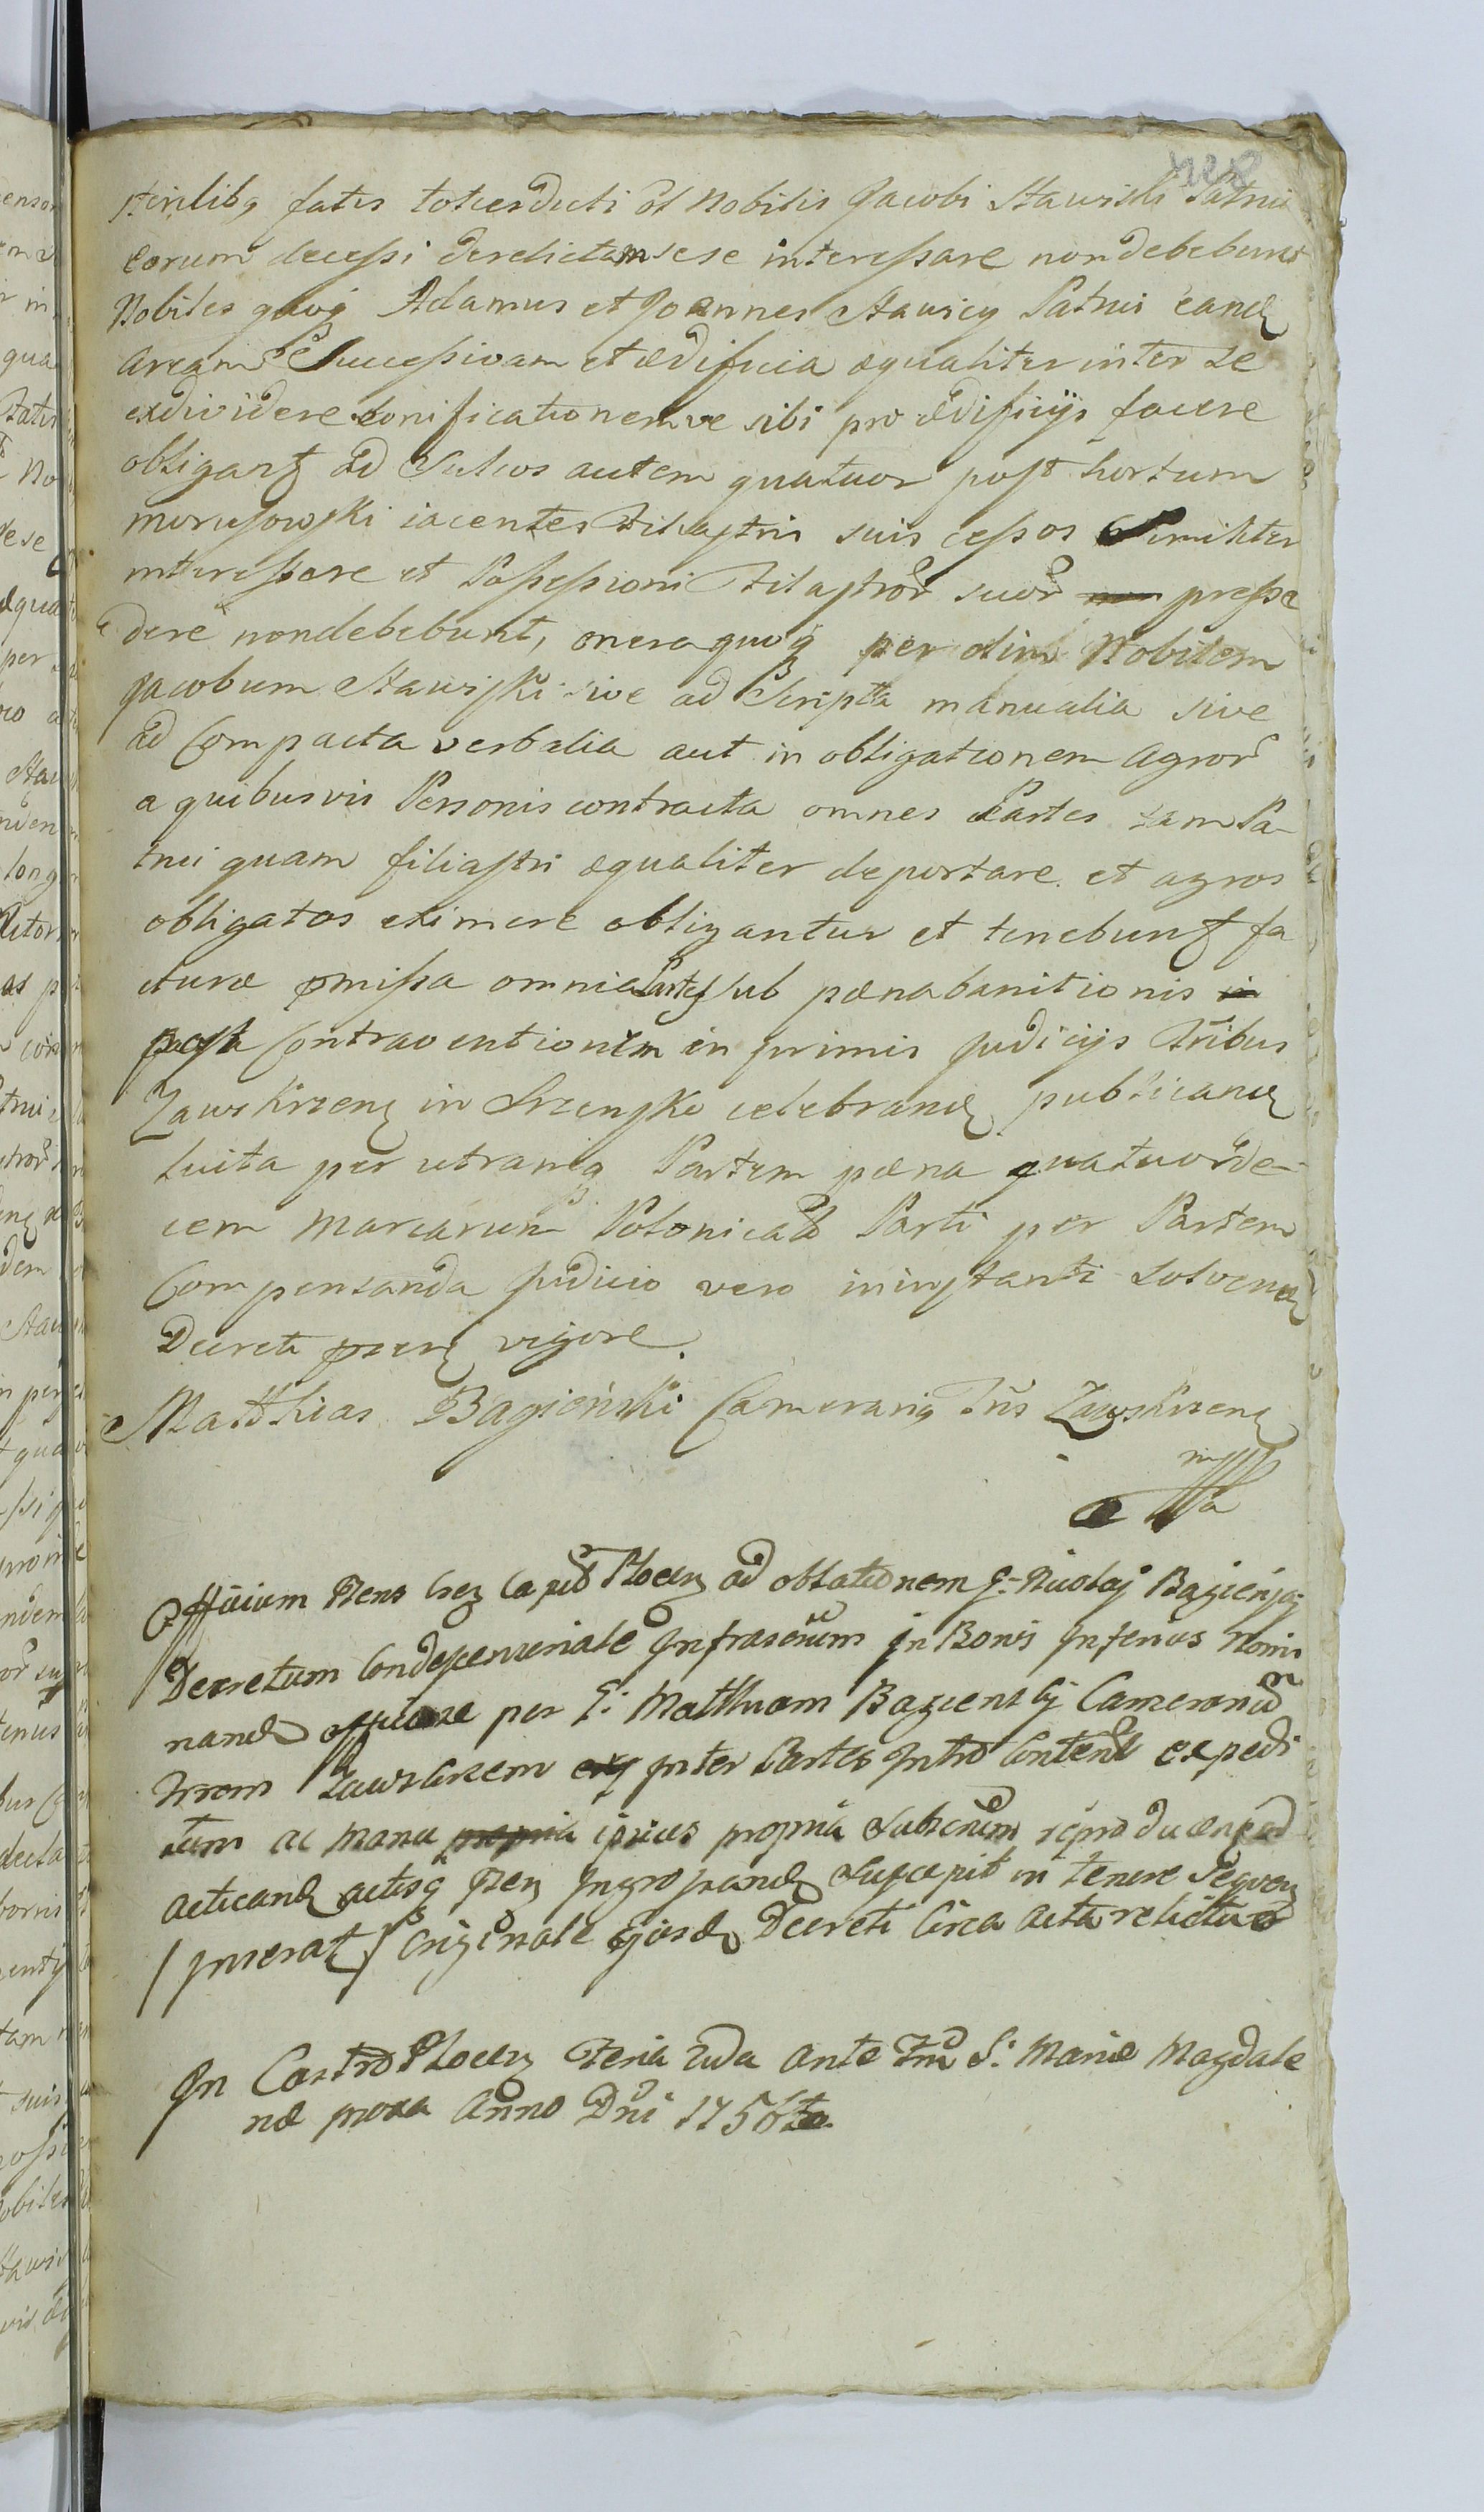 sterilibq fatis totiesdicti ol Nobilis Jacobi Stawiski Patrui
eorum decessi derelictam sese interessare non debebunt
Nobiles quoq Adamus et Joannes Stawscy Patrui eand
aream Successivam et ædificia æqualiter inter se
exdividere bonificationemve sibi pro ædificijs facere
obligant ad Sulcos autem quatuor post hortum
morusowski iacentes Filiastris suis cessos Similiter
interessare et Possessioni Filiastror suor non presse
dere non debebunt, onera quoq per olim Nobilem
Jacobum Stawiski sive ad Scripta manualia sive
ad Compacta verbalia aut in obligationem agror
a quibusvis Personis contracta omnes Partes tam Pa-
trui quam filiastri æqualiter deportare et agros
obligatos eximere obligantur et tenebunt fa
cturæ pmissa omnia Partes sub pæna banitionis in
post Contraventionem in primis Judicijs Tribus
Zawskrzen in Srzensko celebrand publicand
luita per utramq Partem pæna quatuorde-
cem Marcarum Polonical Parti per Partem
Compensanda Judicio vero in instanti Solvend
Decreti psen vigore.
Matthias Bagieński Camerariq Tris Zawskrzen
mppa
Officium Pens Capit Plocen ad oblationem G. Nicolaj Bagieńs
Decretum Condescensoriale Infrascrium in Bonis Inferius Nomi
nand officiose per G. Matthiam Bagiensky Camerariu
Trrem Zawskrzem inter Partes Intro Content expedi
tum ac Manu propria ipsius propria Subscrium reproducens ad
acticand actisq Pen Ingrossand Suscepit in tenere Sequen
Inserat Originale ejusd Decreti Circa acta relictu
In Castro Plocen Feria 2da ante Ftm S. Mariæ Magdale
næ proxa Anno Dni 1756to